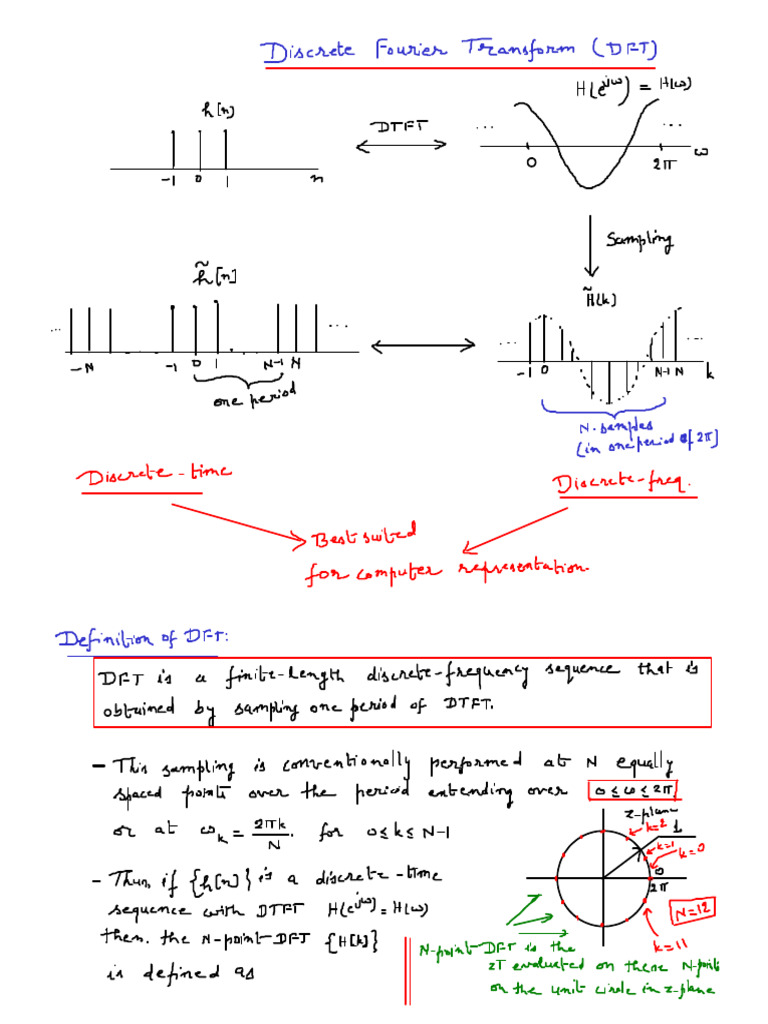 Discrete Fourier Transform (DFT)
h[n]
DTFT
H(e^jω) = H(ω)
... ...
-1 0 1 n
0 2π ω
Sampling
h̃[n]
H̃(k)
... ...
... ...
-N -1 0 1 N-1 N
-1 0 N-1 N k
one period
N-samples
(in one period of 2π)
Discrete-time
Discrete-freq.
Best suited
for computer representation.
Definition of DFT:
DFT is a finite-length discrete-frequency sequence that is
obtained by sampling one period of DTFT.
- This sampling is conventionally performed at N equally
spaced points over the period extending over 0 ≤ ω ≤ 2π
or at ω_k = 2πk/N. for 0 ≤ k ≤ N-1
z-plane
k=2
1
k=1
k=0
0
2π
N=12
k=11
- Thus, if {h[n]} is a discrete-time
sequence with DTFT H(e^jω) = H(ω)
then, the N-point DFT {H[k]}
is defined as
N-point DFT is the
ZT evaluated on these N-points
on the unit circle in z-plane